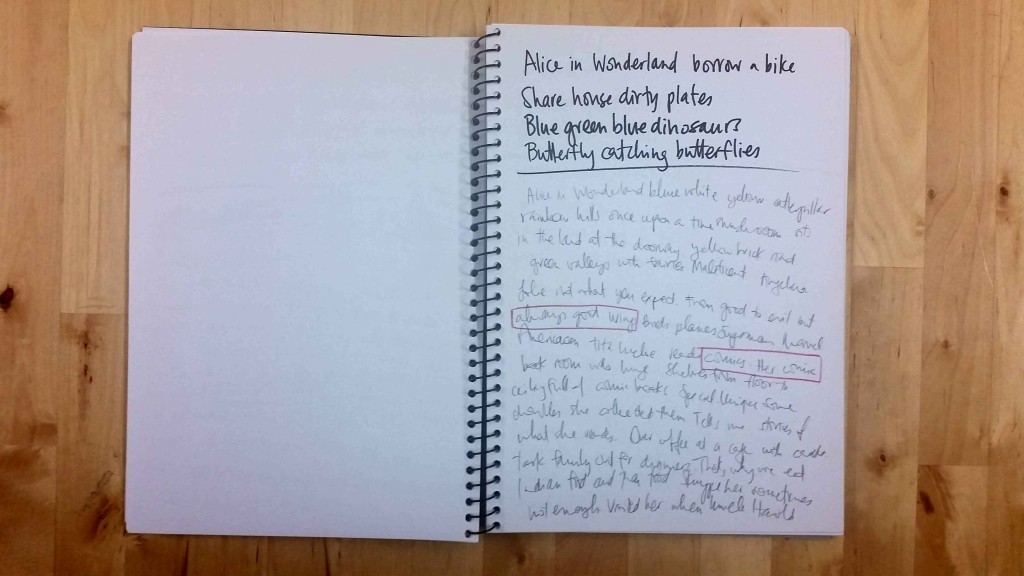 Alice in Wonderland borrow a bike
Share house dirty plates
Blue green blue dinosaurs
Butterfly catching butterflies
Alice in Wonderland blue white yellow caterpillar
rainbow hills once upon a time mushroom sits
in the land at the doorway yellow brick road
green valleys with fairies Maleficent Angelina
Jolie is not what you expect. From good to evil but
always good wing birds planes Superman Marvel
comics the comic
book room was huge shelves from floor to
ceiling full of comic books Special Unique Some
doubles she collected them Tells me stories of
what she reads. Our office at a cafe with
took family out for That's why we eat
Indian food and Thai food her sometimes
not enough Visited her when Uncle Harold